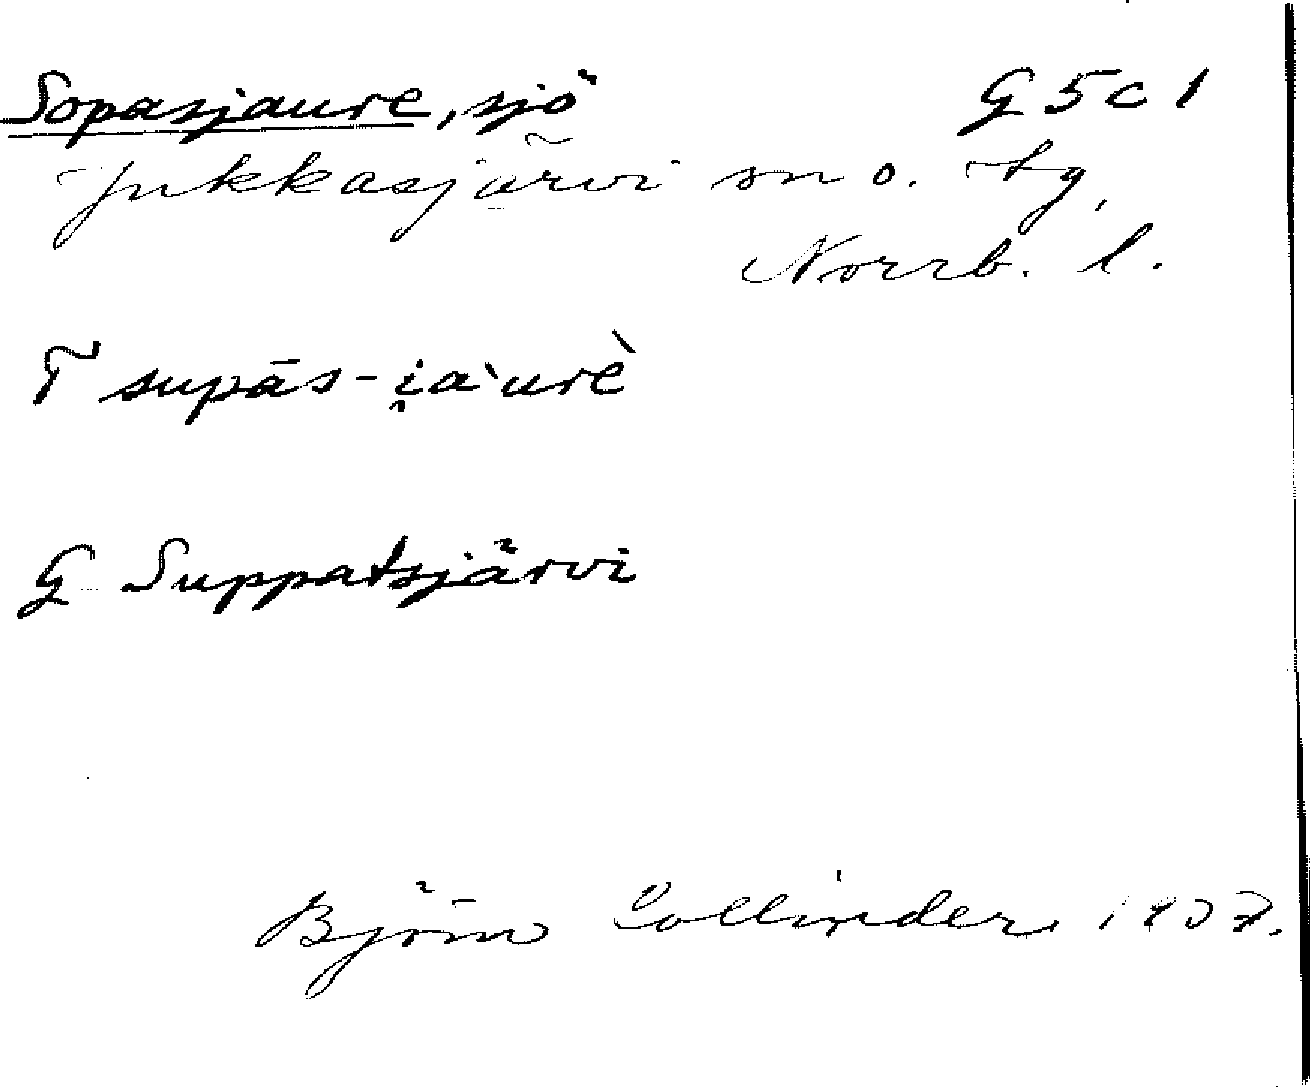 Sopasjaure, sjö G 5 c 1
Jukkasjärvi sn o. tg,
Norrb. l.
T supās-i̯a`urè
G Suppatsjärvi
Björn Collinder